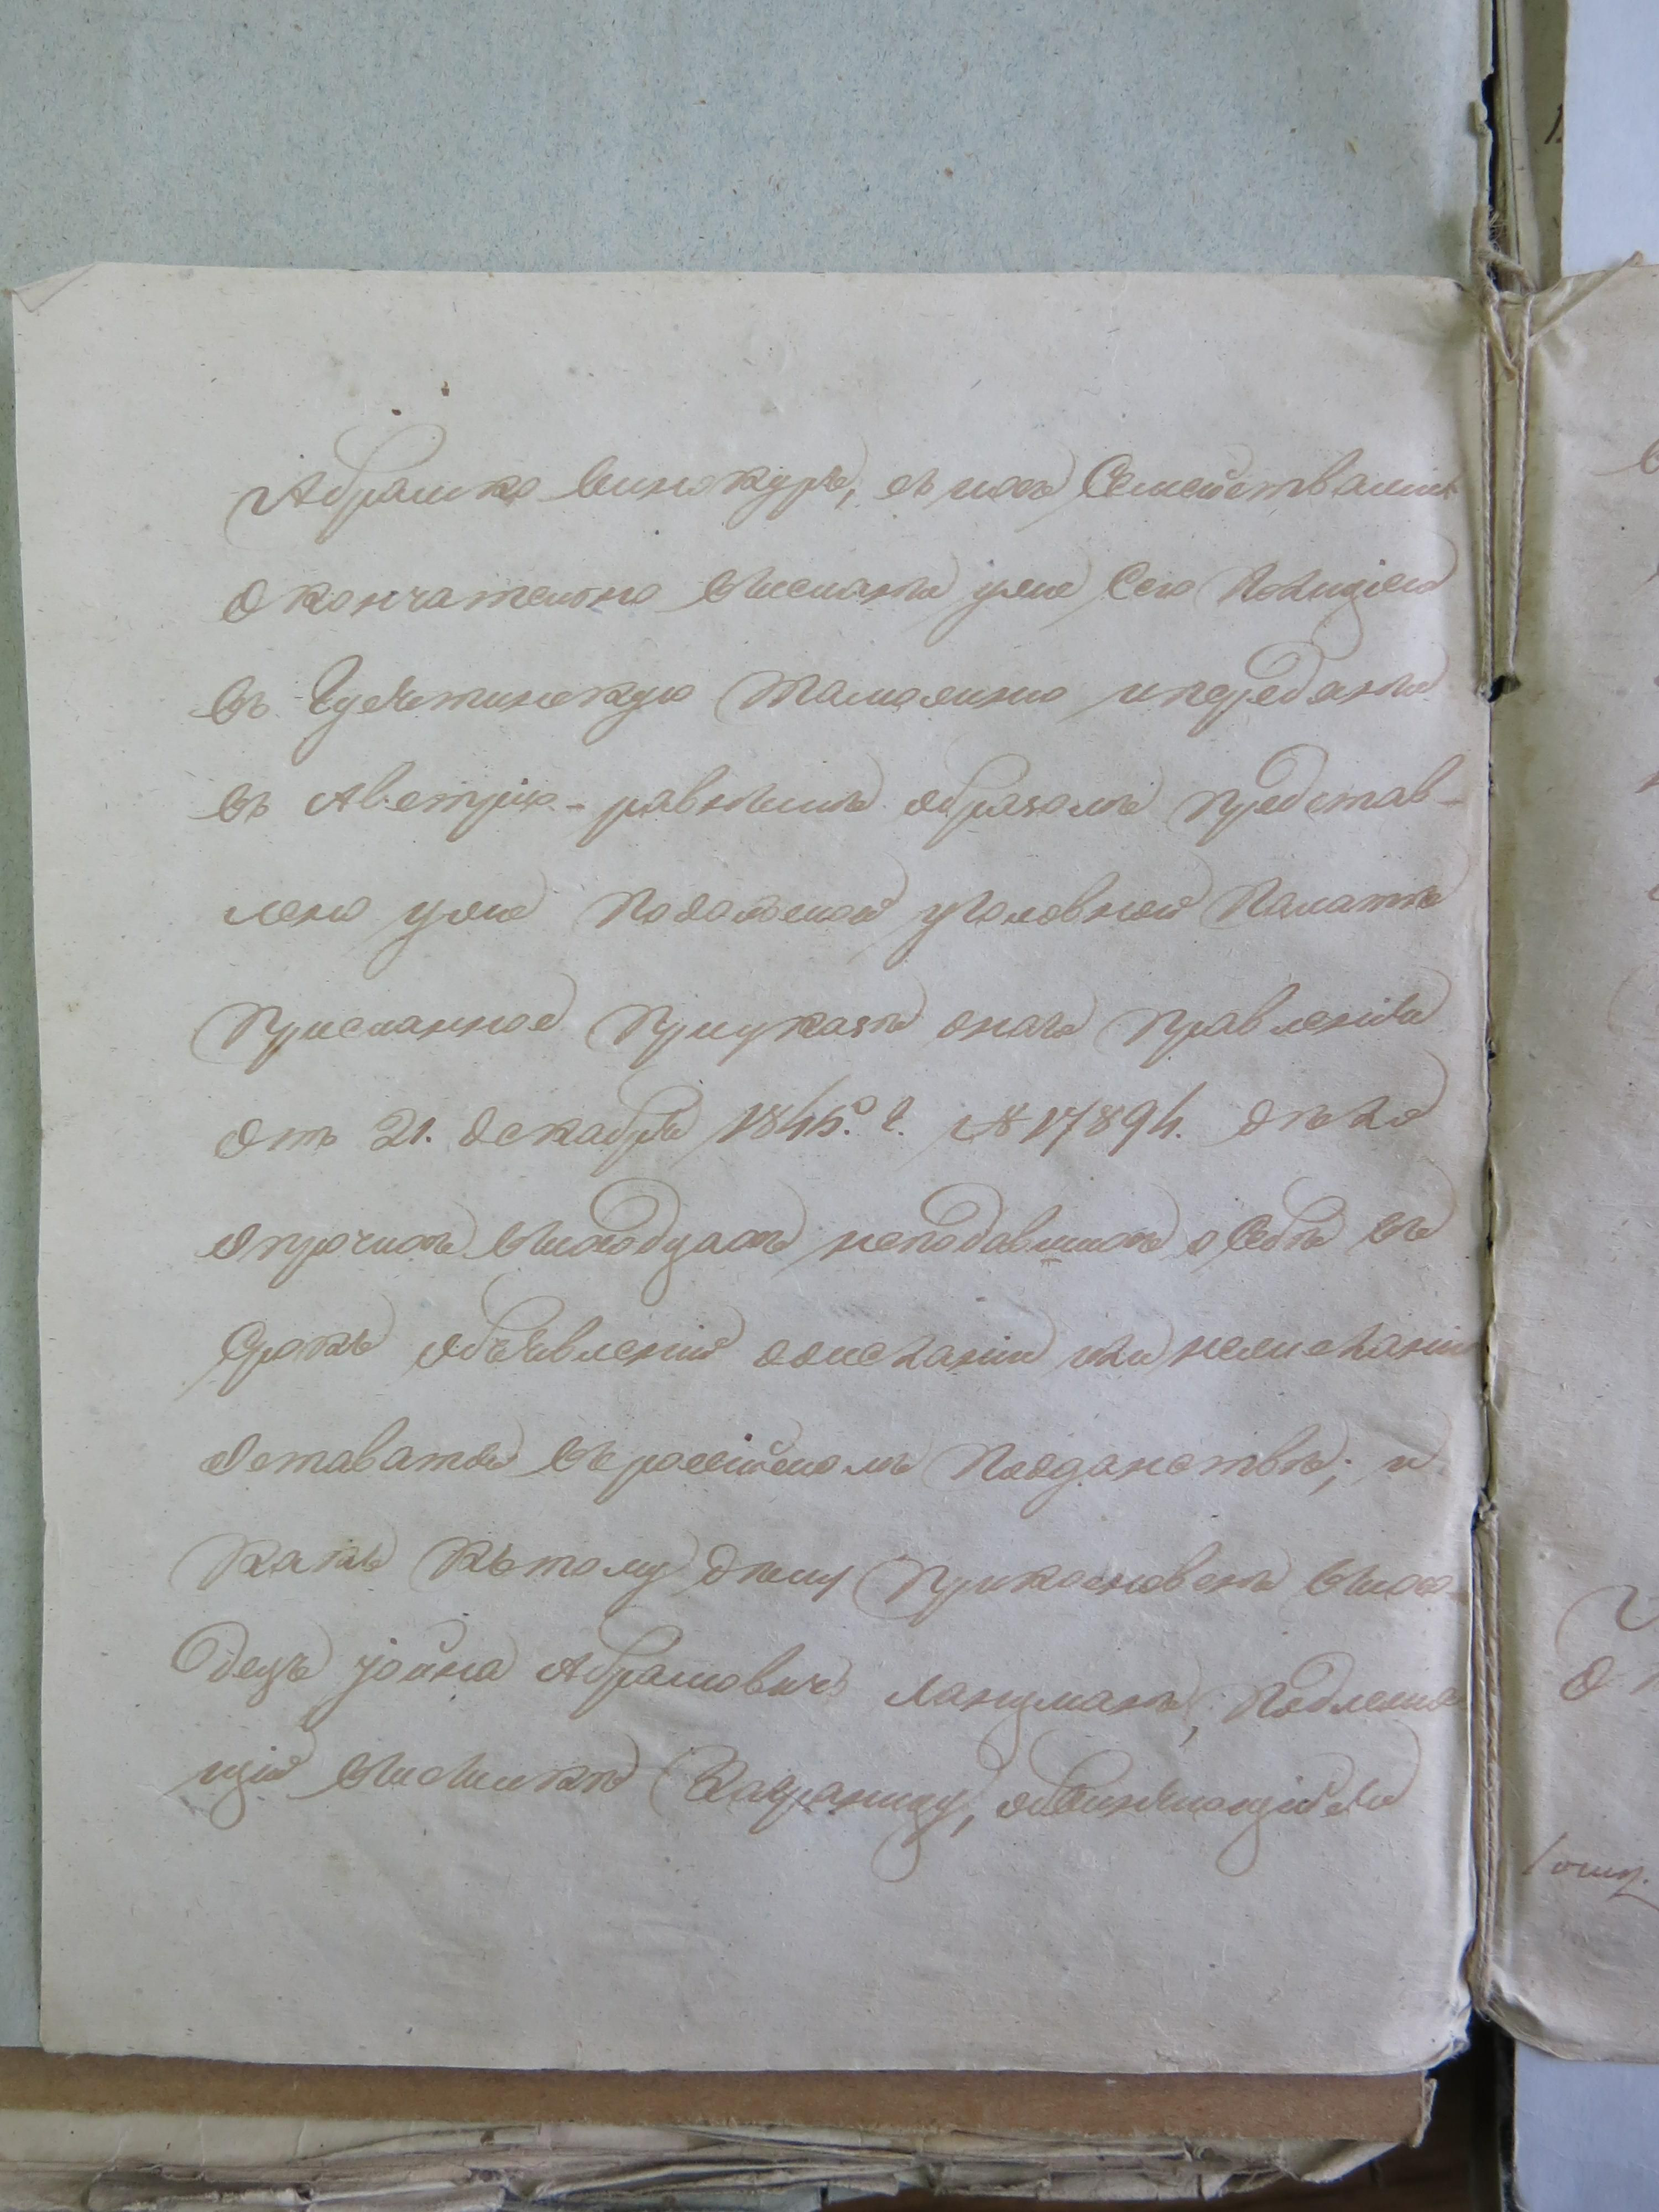 Абрамко Винокуръ, съ ихъ Семействами
окончательно высланы уже Сею Полициею
въ Гусятинскую Таможню и переданы
въ Австрію - равнымъ образомъ представ-
лено уже Подольской уголовной Палатѣ
присланное при указѣ онаго правленія
отъ 21. декабря 1845.º г. №17894. дѣло
опрочихъ выходцахъ неподавшихъ о Себѣ въ
Срокъ объявленій ожеланіи или нежеланіи
оставаться въ россійскомъ подданствѣ; и
какъ къ тому дѣлу прикосновенъ выхо-
децъ Іойна Абрамовичъ Ланцманъ, подлежа
щій высылкѣ Заграницу, обвиняющійся